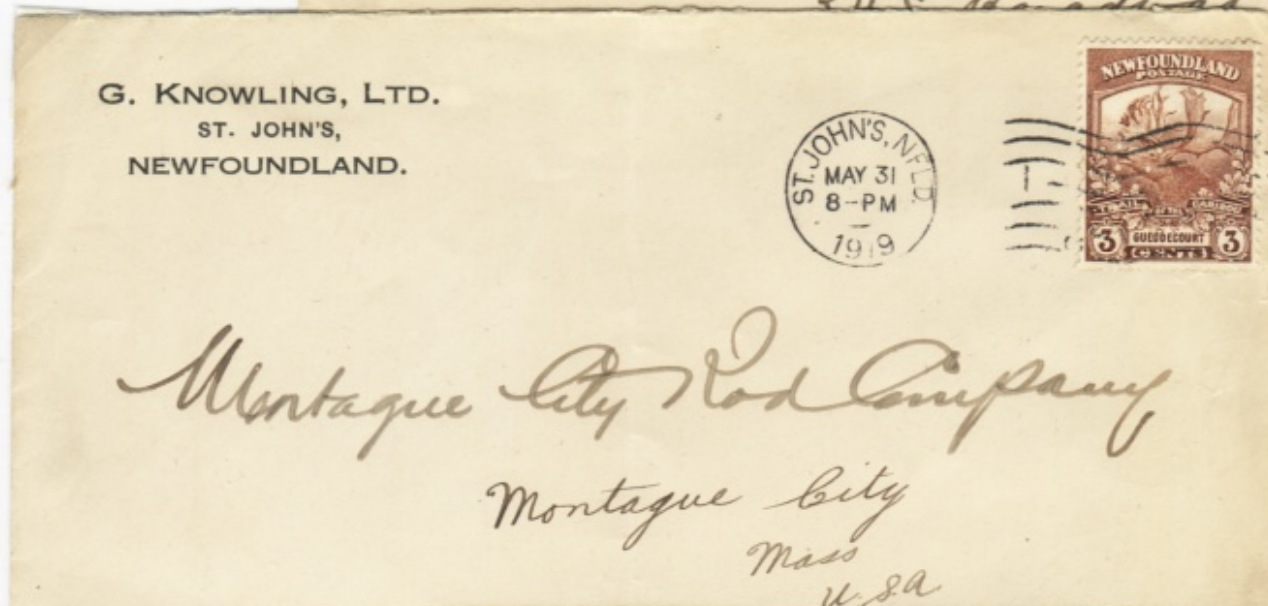 G. KNOWLING, LTD.
ST. JOHN'S,
NEWFOUNDLAND.
ST. JOHN'S, NFLD.
MAY 31
8-PM
1919
NEWFOUNDLAND
POSTAGE
TRAIL OF THE CARIBOU
3 GUEUDECOURT 3
CENTS
Montague City Rod Company
Montague City
Mass
U.S.A